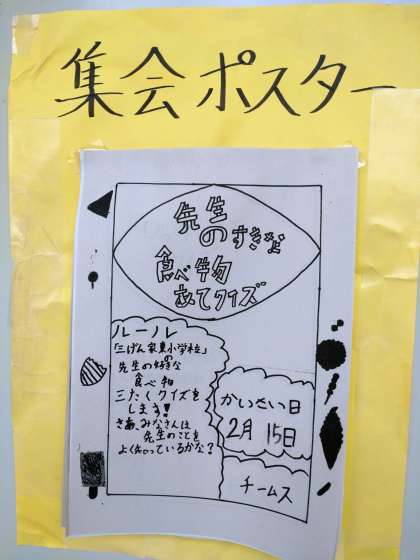 集会ポスター
先生
のすきな
食べ物
あてクイズ
ルール
「三げん家東小学校」の
先生の好きな
食べ物
三たくクイズを
します!
さあ、みなさんは
先生のことを
よく知っているかな?
かいさい日
2月 15日
チームス